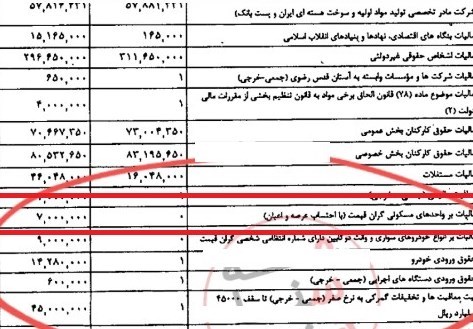 شرکت مادر تخصصی تولید مواد اولیه و سوخت هسته ای ایران و پست بانک) ۵۷,۸۸۱,۲۲۱ ۵۷,۸۱۳,۲۲۱
مالیات بنگاه های اقتصادی، نهادها و بنیادهای انقلاب اسلامی ۱۶۵,۰۰۰ ۱۵,۱۶۵,۰۰۰
مالیات اشخاص حقوقی غیردولتی ۳۱۱,۶۵۰,۰۰۰ ۲۹۶,۶۵۰,۰۰۰
مالیات شرکت ها و مؤسسات وابسته به آستان قدس رضوی (جمعی-خرجی) ۱ ۶۵۰,۰۰۰
مالیات موضوع ماده (۷۸) قانون الحاق برخی مواد به قانون تنظیم بخشی از مقررات مالی ۱ ۴,۰۰۰,۰۰۰
دولت (۲)
مالیات حقوق کارکنان بخش عمومی ۷۳,۰۰۴,۳۵۰ ۷۰,۶۶۷,۳۵۰
مالیات حقوق کارکنان بخش خصوصی ۸۳,۱۹۵,۶۵۰ ۸۰,۵۳۲,۶۵۰
مالیات مستغلات ۱۶,۰۴۸,۰۰۰ ۴۶,۰۴۸,۰۰۰
مالیات بر واحدهای مسکونی گران قیمت (با احتساب عرصه و اعیان) ۰ ۷,۰۰۰,۰۰۰
مالیات بر انواع خودروهای سواری و وانت دو کابین دارای شماره انتظامی شخصی گران قیمت ۰ ۹,۰۰۰,۰۰۰
حقوق ورودی خودرو ۱ ۱۴,۲۸۰,۰۰۰
حقوق ورودی دستگاه های اجرایی (جمعی - خرجی) ۱ ۶۰۰,۰۰۰
معافیت ها و تخفیفات گمرکی به نرخ صفر (جمعی - خرجی) تا سقف ۴۵۰۰۰ ۱ ۴۵,۰۰۰,۰۰۰
میلیارد ریال